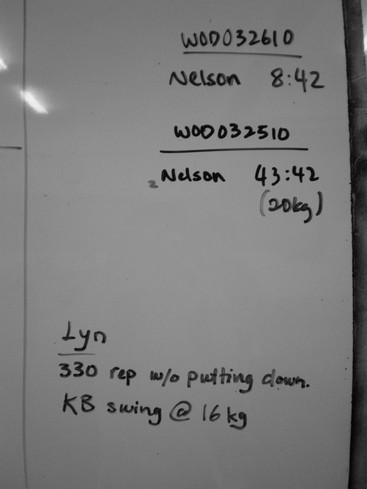 WOD032610
Nelson 8:42
WOD032510
Nelson 43:42
(20kg)
Lyn
330 rep w/o putting down.
KB swing @ 16kg